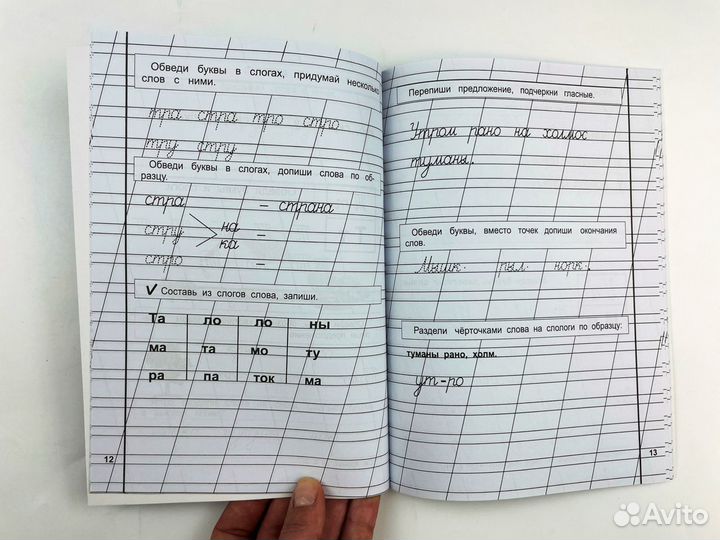 Обведи буквы в слогах, придумай несколько
слов с ними.
тра стра тро стро
тру стру
Обведи буквы в слогах, допиши слова по об-
разцу.
стра – страна
стру на –
ка
стро –
✓ Составь из слогов слова, запиши.
Та ло ло ны
ма та мо ту
ра па ток ма
12
Перепиши предложение, подчеркни гласные.
Утром рано на холмос
туманы.
Обведи буквы, вместо точек допиши окончания
слов.
Мышк. рыл. норк.
Раздели чёрточками слова на слологи по образцу:
туманы рано, холм.
ут-ро
13
Avito